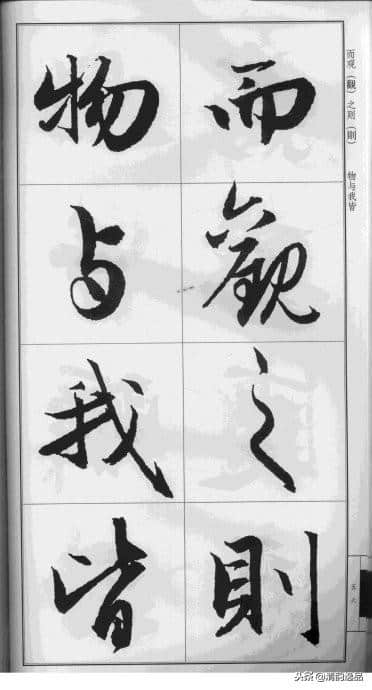 而觀之則
物与我皆
而观（觀）之则（則） 物与我皆
五六
头条@清韵逸品